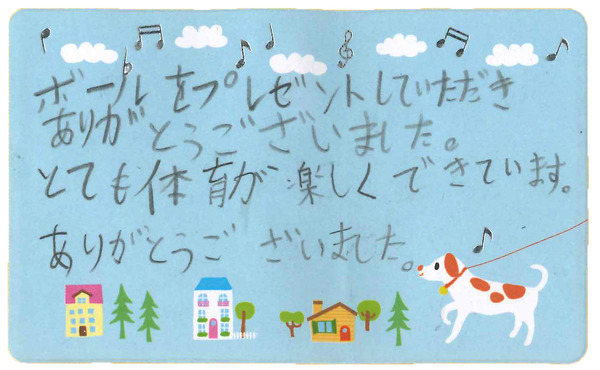 ボールをプレゼントしていただき
ありがとうございました。
とても体育が楽しくできています。
ありがとうございました。